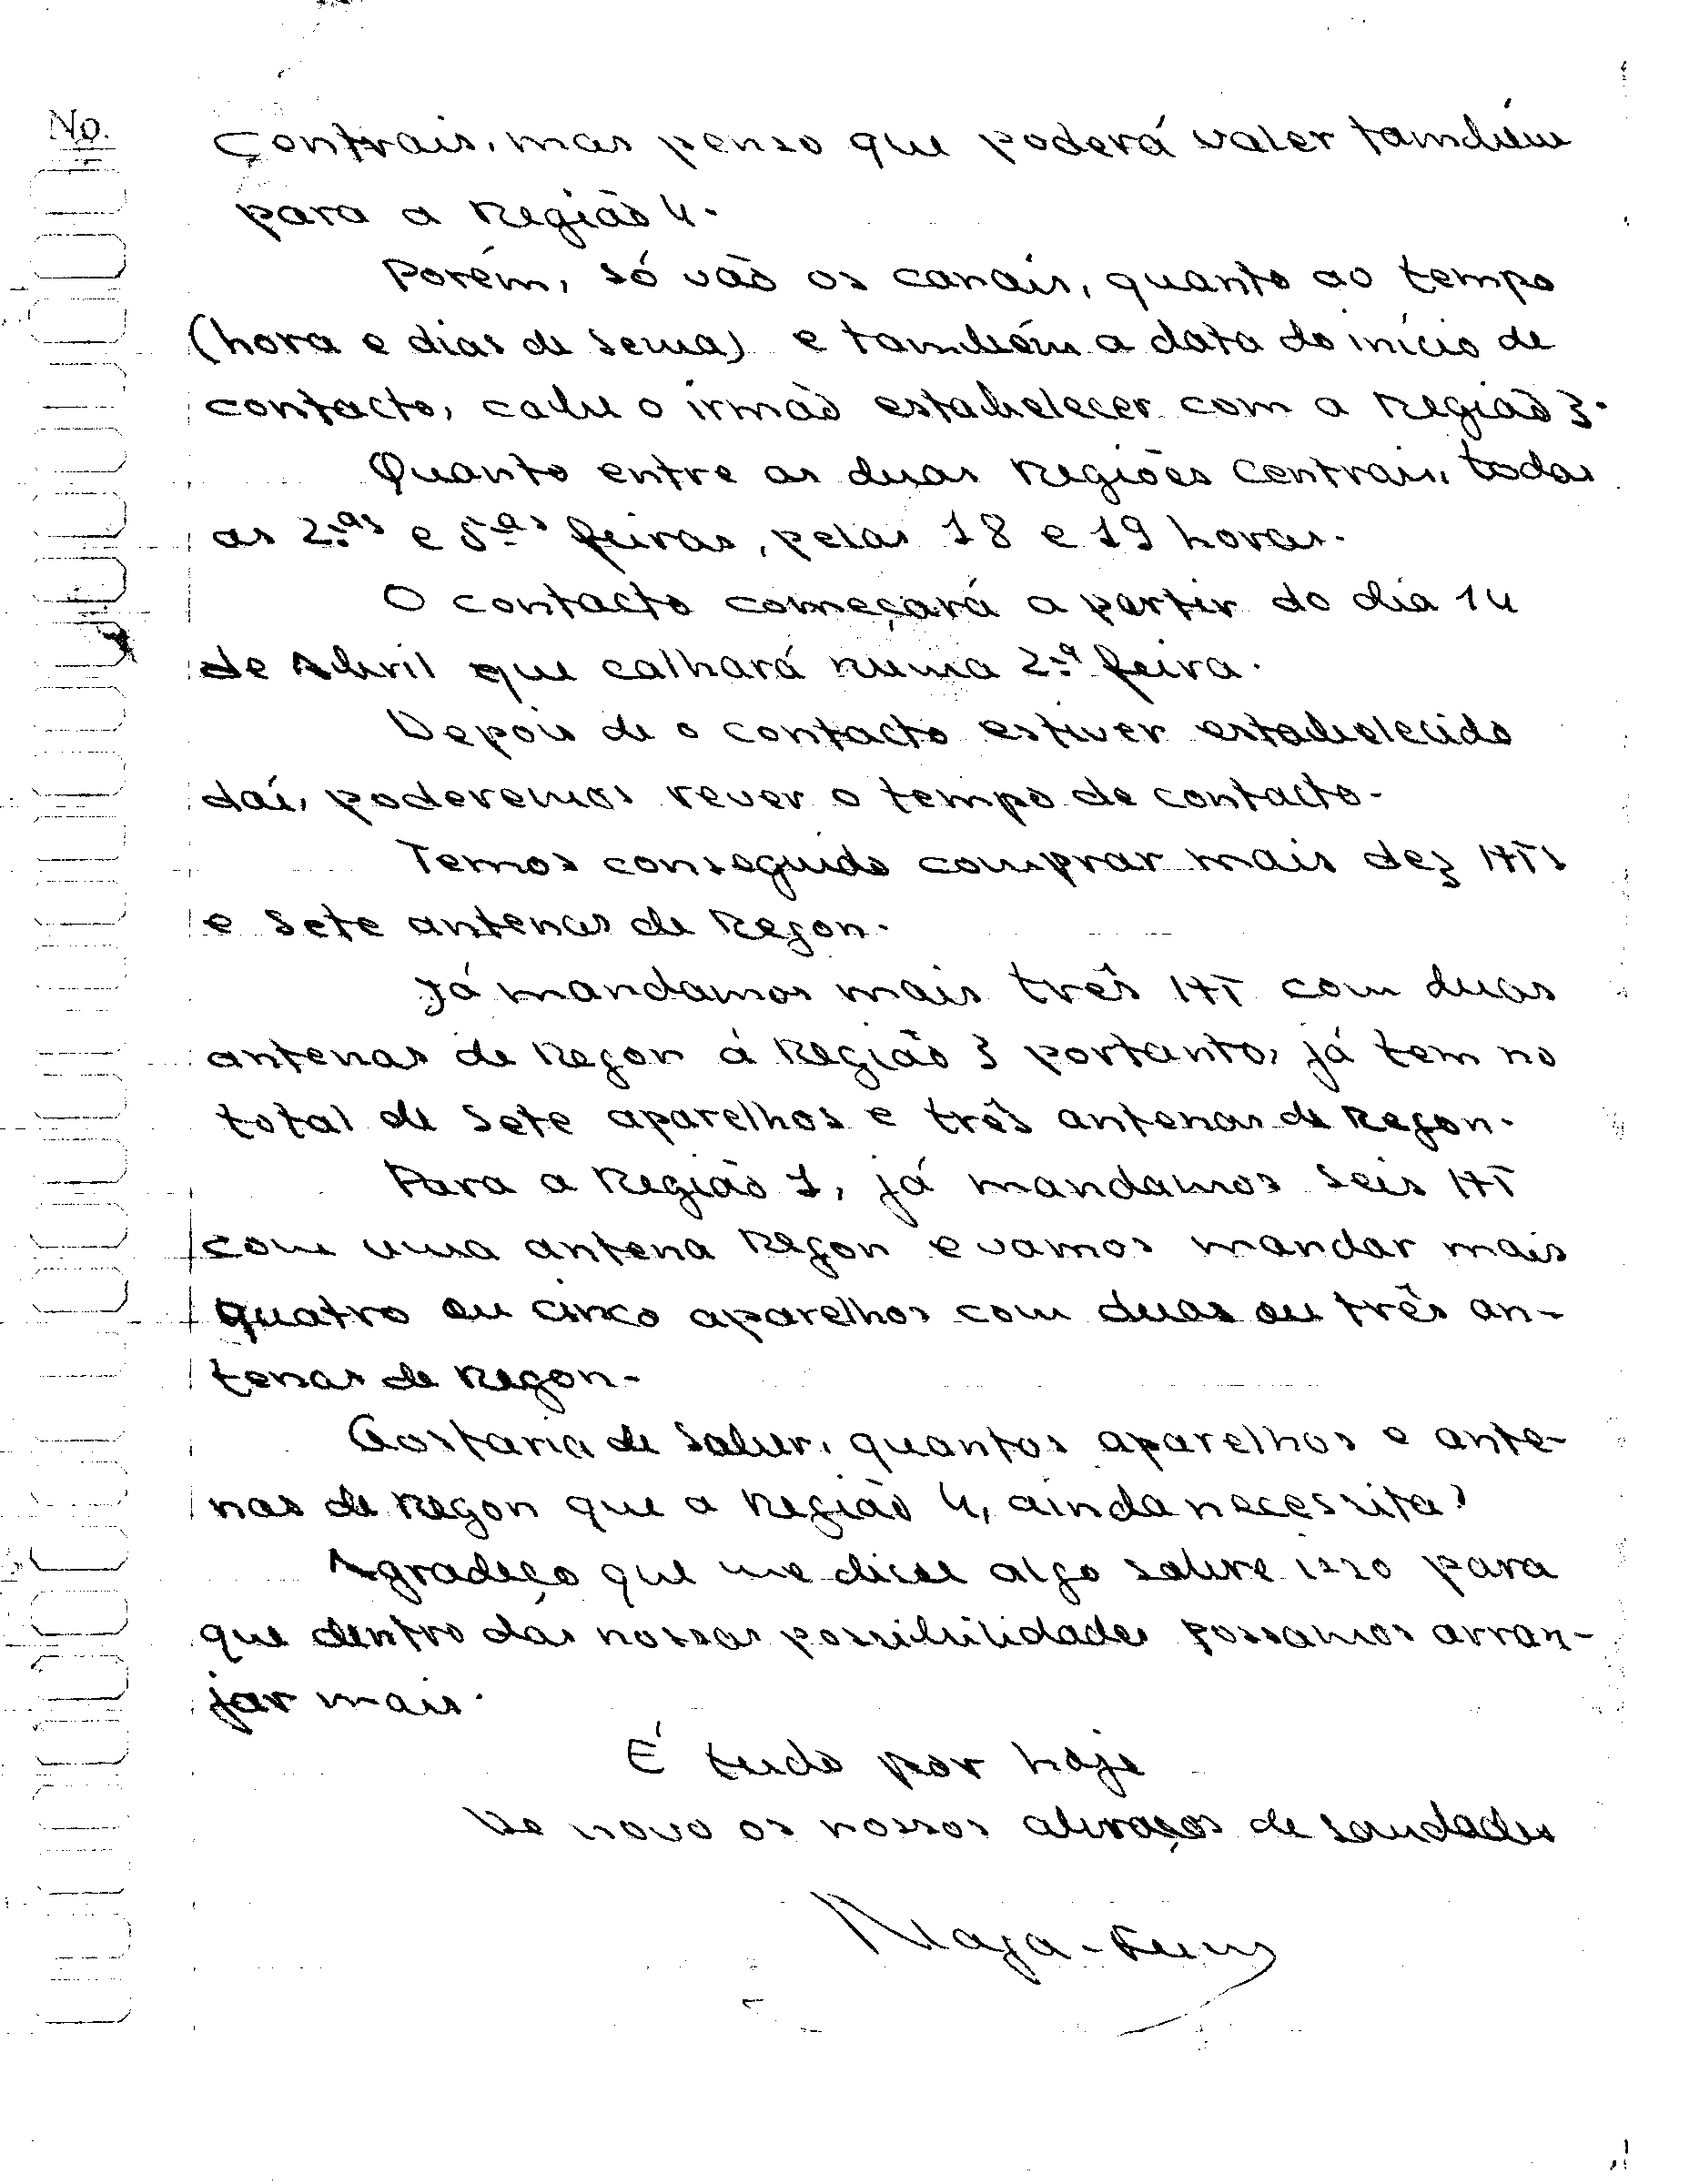 No.
Centrais, mas penso que poderá valer também
para a Região 4.
Porém, só vão os canais, quanto ao tempo
(hora e dias de sema) e também a data do início de
contacto, cabe o irmão estabelecer com a Região 3.
Quanto entre as duas Regiões Centrais, todas
as 2.ªs e 5.ªs feiras, pelas 18 e 19 horas.
O contacto começará a partir do dia 14
de Abril que calhará numa 2.ª feira.
Depois de o contacto estiver estabelecido
daí, poderemos rever o tempo de contacto.
Temos conseguido comprar mais dez HTs
e sete antenas de Regon.
Já mandamos mais três HT com duas
antenas de Regon á Região 3 portanto, já tem no
total de sete aparelhos e três antenas de Regon.
Para a Região 1, já mandamos seis HT
com uma antena Regon e vamos mandar mais
quatro ou cinco aparelhos com duas ou três an-
tenas de Regon.
Gostaria de saber, quantos aparelhos e ante-
nas de Regon que a Região 4, ainda necessita?
Agradeço que me disse algo sobre isso para
que dentro das nossas possibilidades possamos arran-
jar mais.
É tudo por hoje
De novo os nossos abraços de saudades